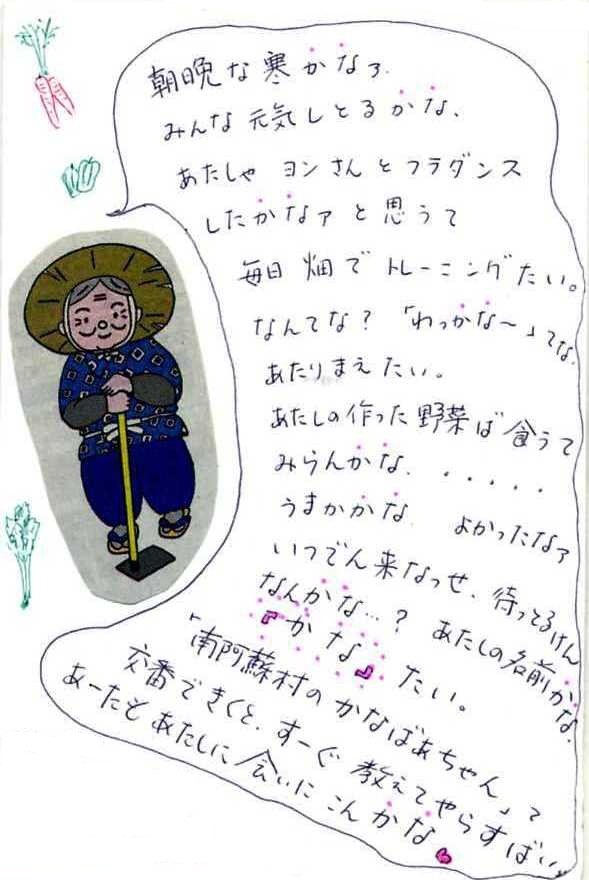 朝晩な寒かなァ.
みんな元気しとるかな、
あたしゃ ヨンさんとフラダンス
したかなァと思うて
毎日 畑で トレーニングたい。
なんてな？ 「わっかな〜」てな.
あたりまえたい。
あたしの作った野菜ば食うて
みらんかな. ．．．．．
うまかかな よかったなァ
いつでん来なっせ. 待っとるけん
なんかな…？ あたしの名前かな.
『かな』たい。
「南阿蘇村のかなばあちゃん」て
交番できくと、すーぐ 教えてやらすばい。
あーたもあたしに会いにこんかな